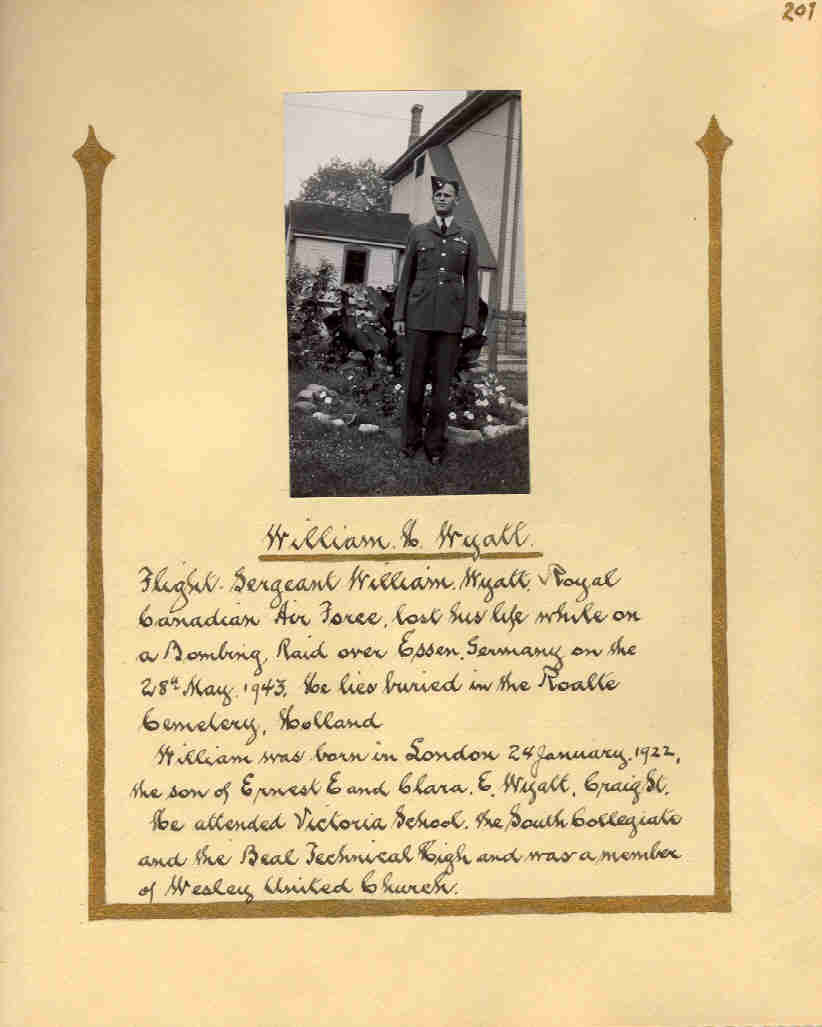 201
William. H. Wyatt.
Flight-Sergeant William. Wyatt. Royal
Canadian Air Force, lost his life while on
a Bombing, Raid over Essen, Germany on the
28th May. 1943. He lies buried in the Roalte
Cemetery, Holland
William was born in London 24 January. 1922,
the son of Ernest E and Clara. E. Wyatt, Craig St.
He attended Victoria School. the South Collegiate
and the Beal Technical High and was a member
of Wesley United Church.